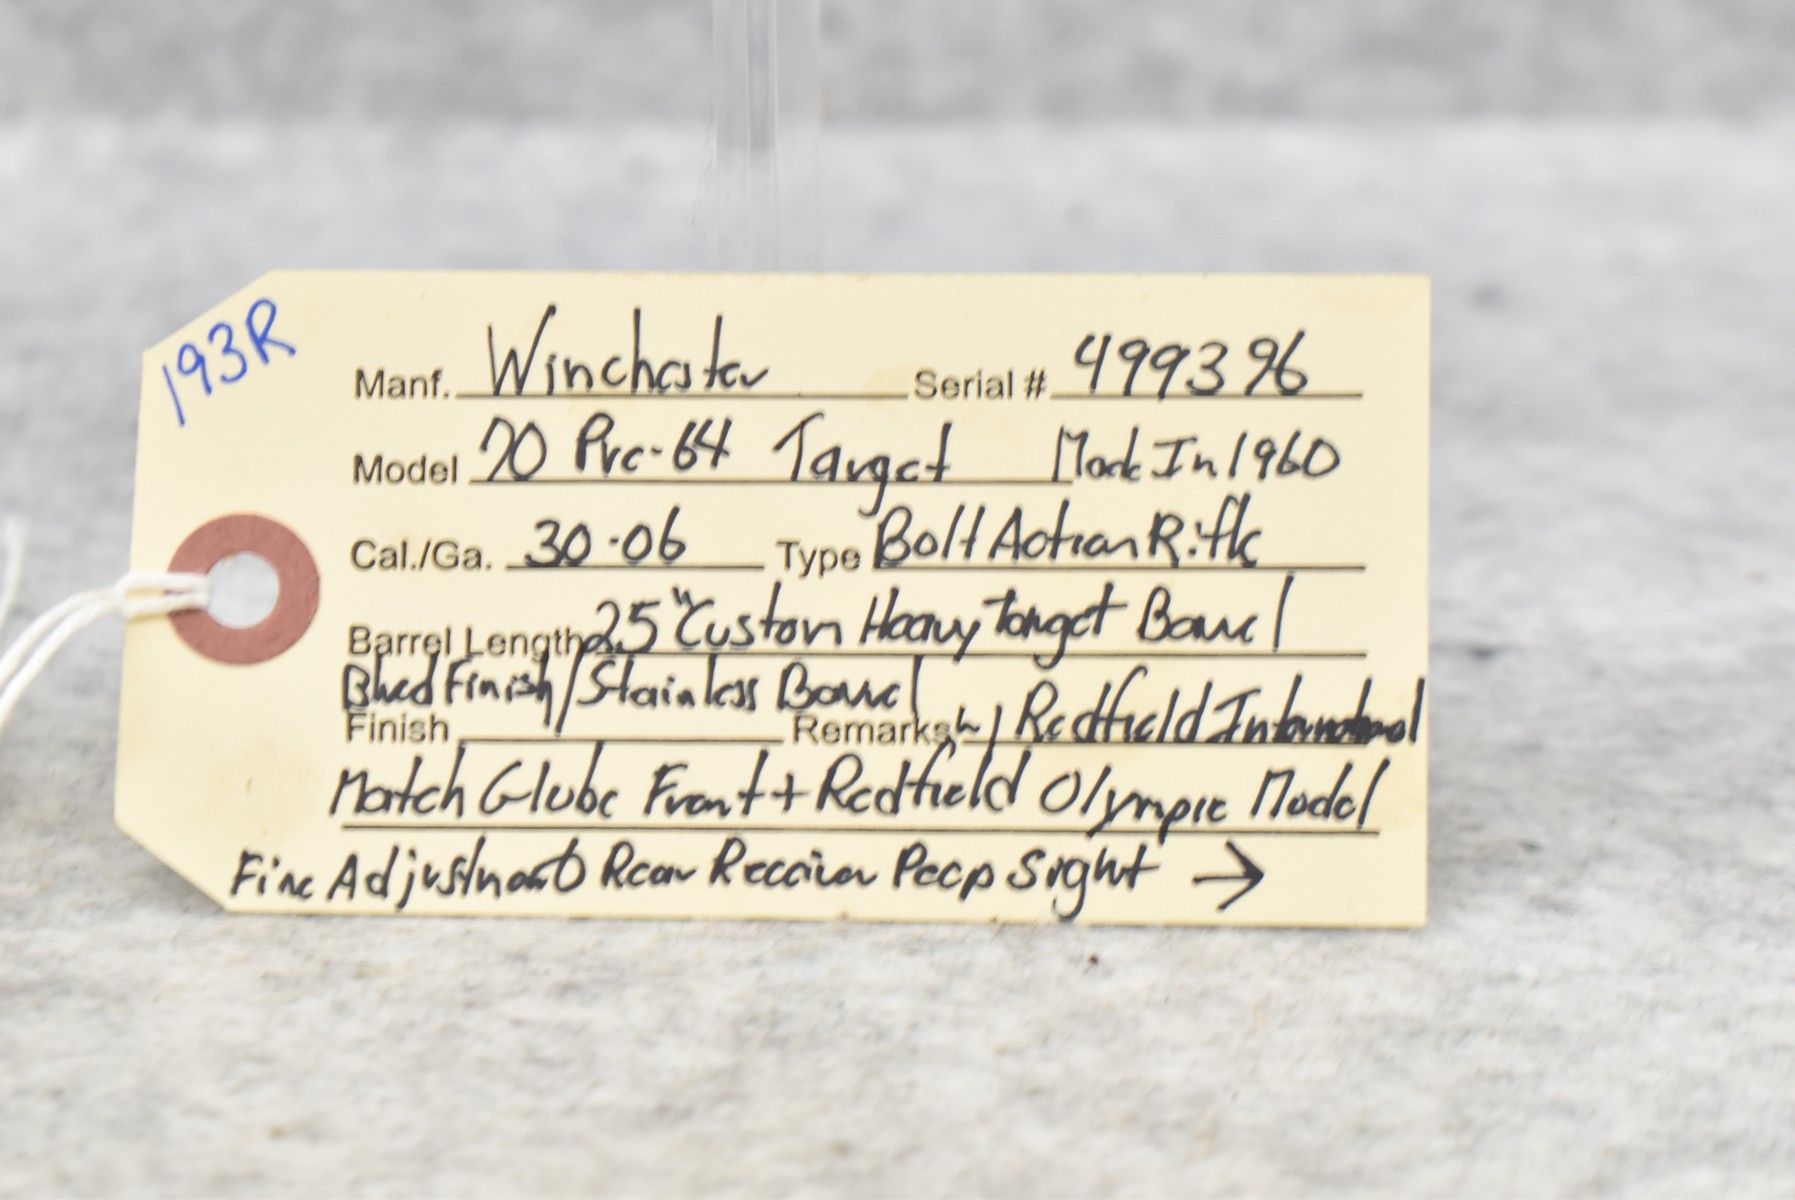 193R
Manf. Winchester Serial # 499396
Model 70 Pre-64 Target Made In 1960
Cal./Ga. 30-06 Type Bolt Action Rifle
Barrel Length 25" Custom Heavy Target Barrel
Blued Finish/Stainless Barrel
Finish Remarks w/ Redfield International
Match Globe Front + Redfield Olympic Model
Fine Adjustment Rear Receiver Peep Sight →